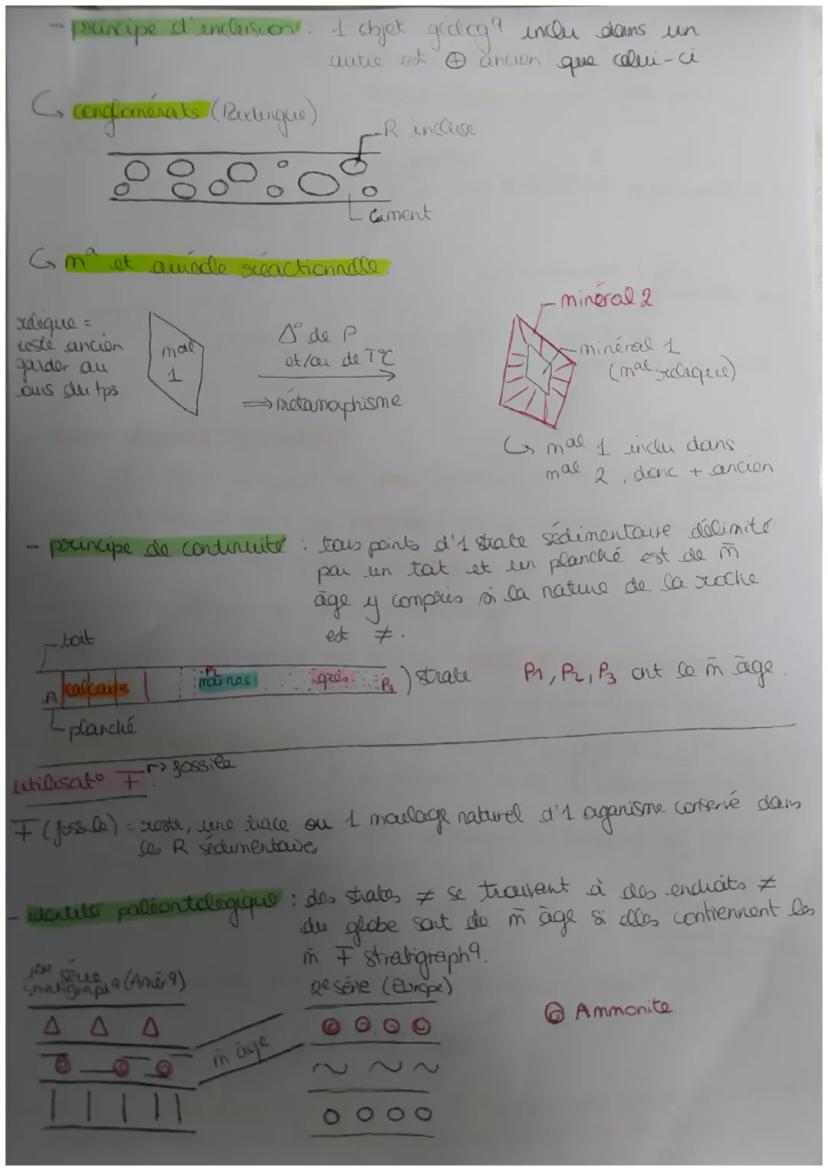 - principe d'inclusion : 1 objet géolog^q inclu dans un
autre est ⊕ ancien que celui-ci
↪ conglomérats (Poudingue)
R incluse
Ciment
↪ m^a et auréole réactionnelle
relique =
reste ancien
garder au
cours du tps
mal
1
Δ° de P
et/ou de T°C
⟹ métamorphisme
minéral 2
minéral 1
(mal relique)
↪ mal 1 inclu dans
mal 2, donc + ancien
- principe de continuité : tous points d'1 strate sédimentaire délimité
par un toit et un planché est de m̄
âge y compris si la nature de la roche
est ≠.
toit
P1 calcaire P2 marnes grès P3 ) strate P1, P2, P3 ont le m̄ âge.
planché
utilisat° F → fossile
F (fossile) = reste, une trace ou 1 moulage naturel d'1 organisme conservé dans
les R sédimentaire
- identité paléontologique : des strates ≠ se trouvent à des endroits ≠
du globe sont de m̄ âge si elles contiennent les
m̄ F stratigraph^q.
1ère série
stratigraph^q (Amér^q)
2e série (Europe)
m̄ âge
Ammonite